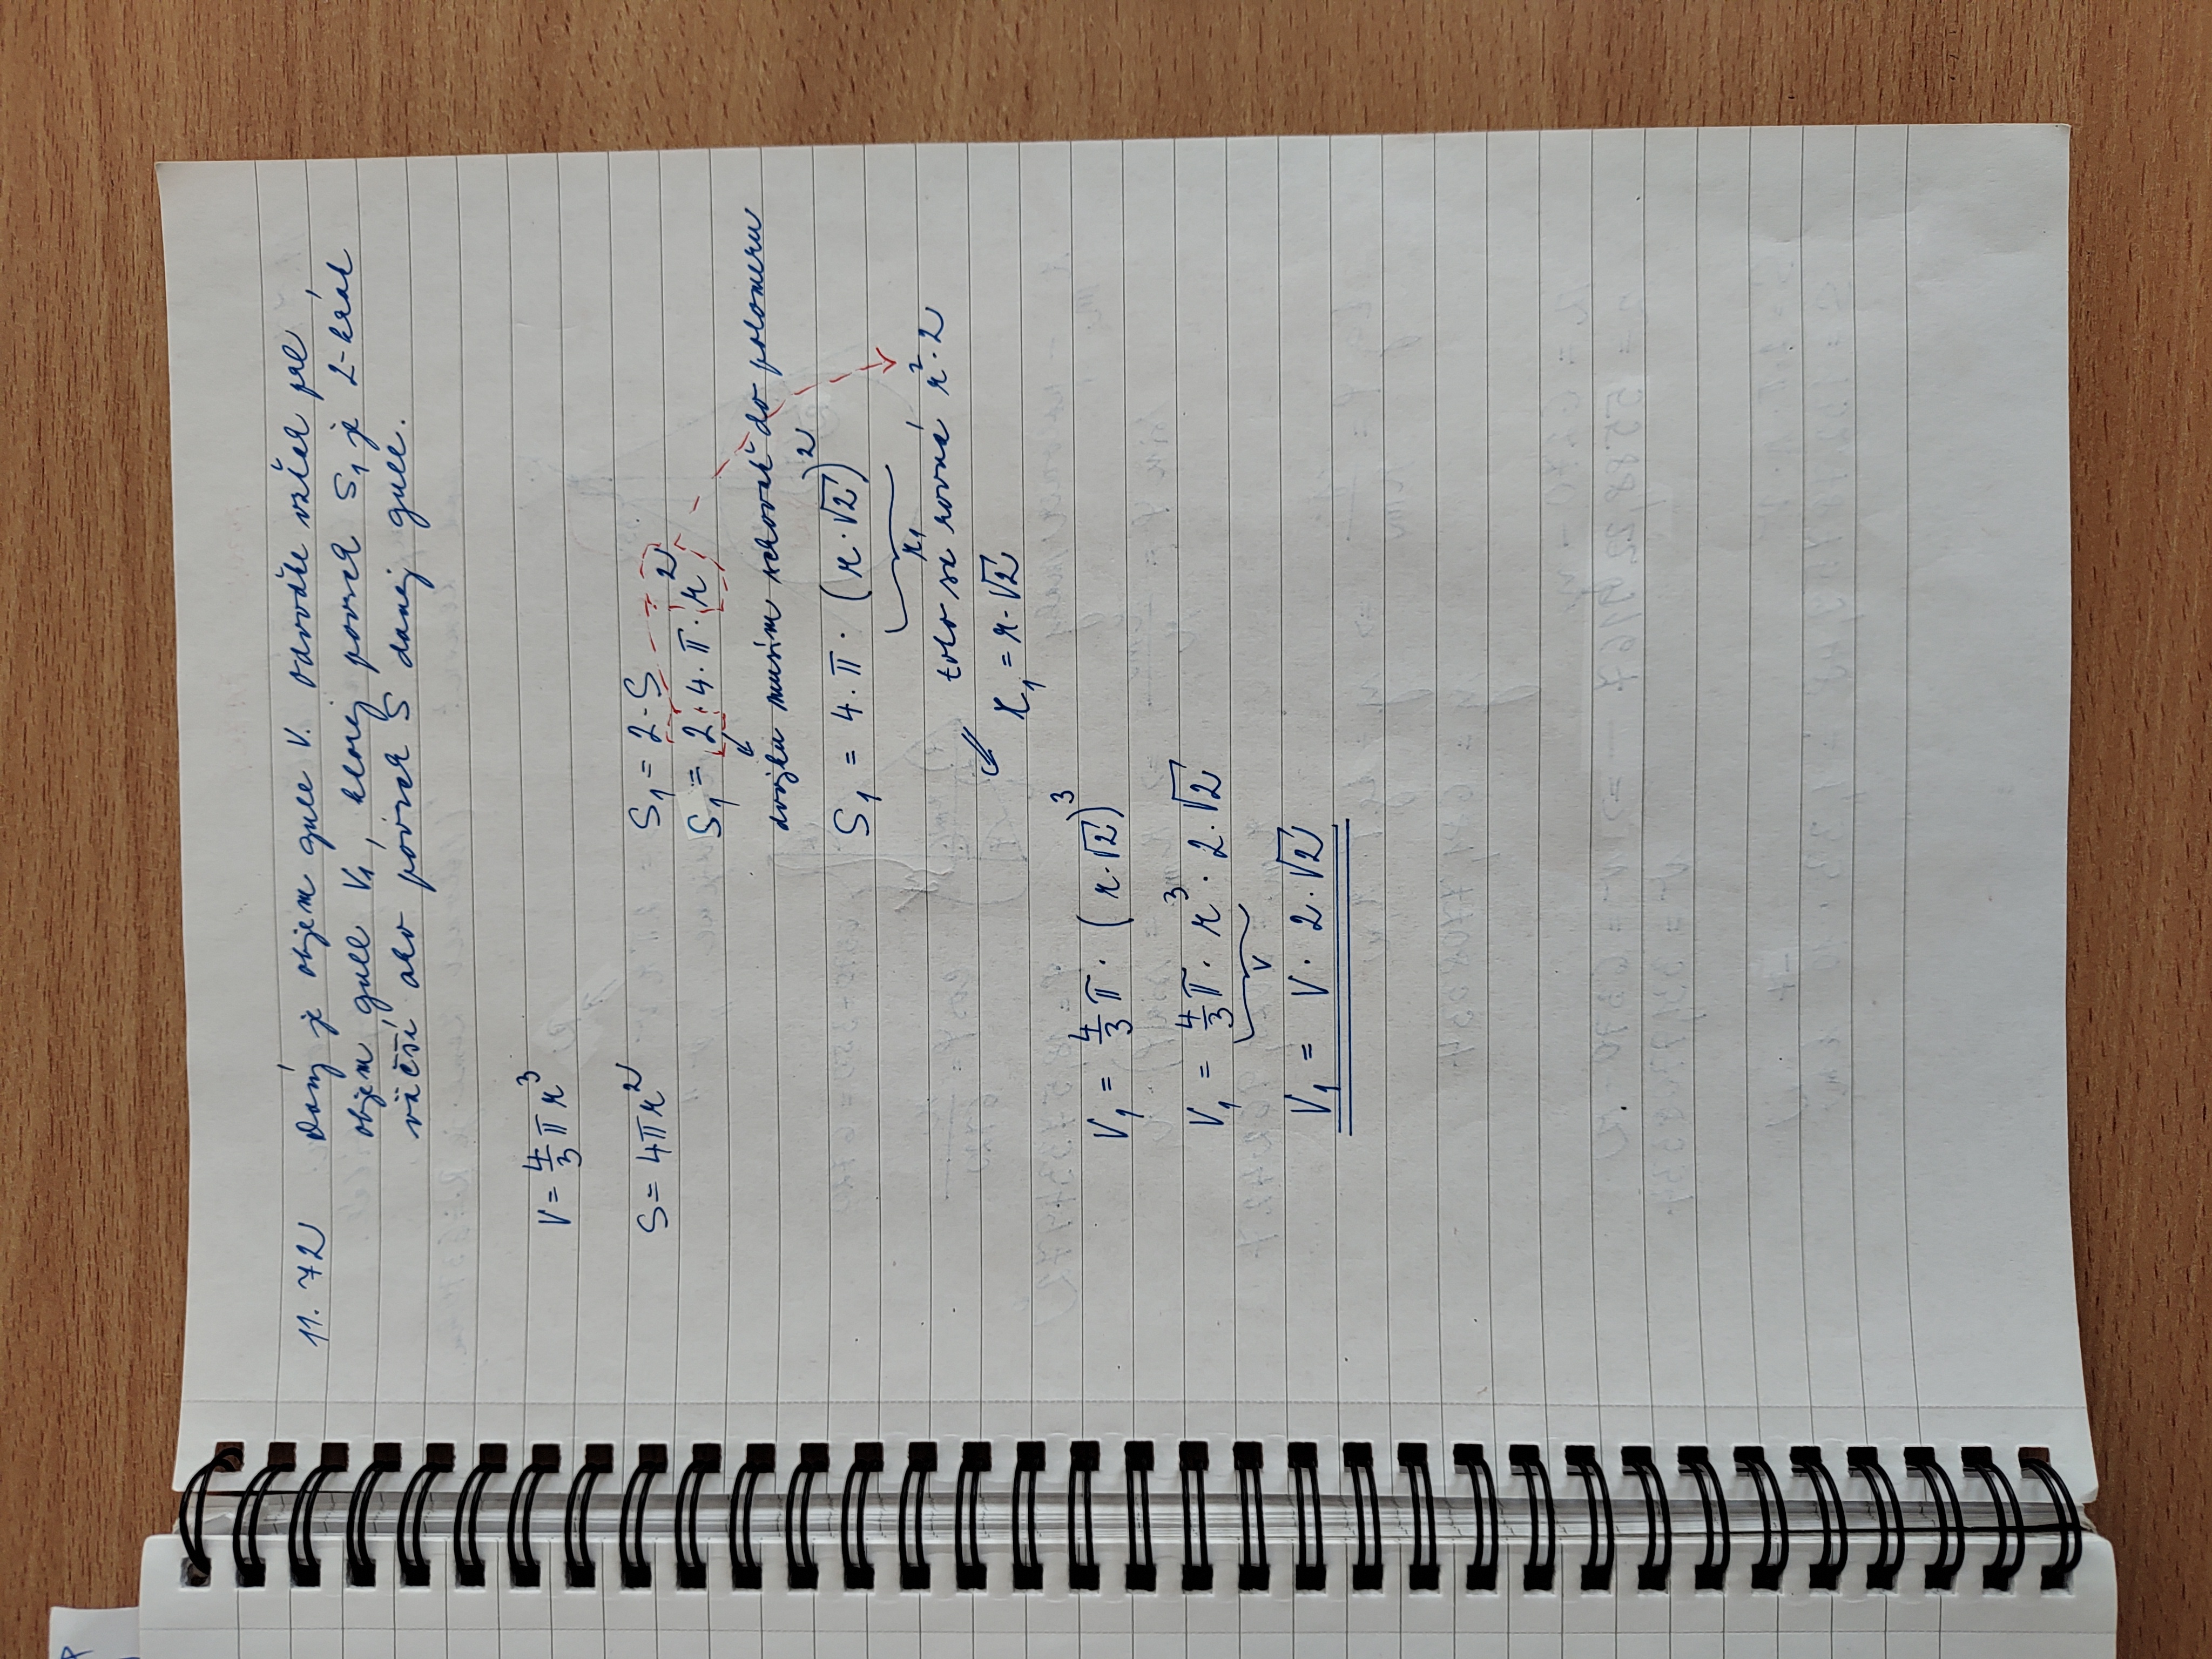 11.72 Daný je objem gule V. Odvoďte vzťah pre
objem gule V₁, ktorej povrch S₁ je 2-krát
väčší ako povrch S danej gule.
V = 4/3 π r³
S = 4πr²
S₁ = 2·S
S₁ = 2·4·π·r²
dvojku musím schovať do polomeru
S₁ = 4·π·(r·√2)²
r₁
toto sa rovná r²·2
r₁ = r·√2
V₁ = 4/3 π · (r·√2)³
V₁ = 4/3 π · r³ · 2·√2
V
V₁ = V · 2·√2